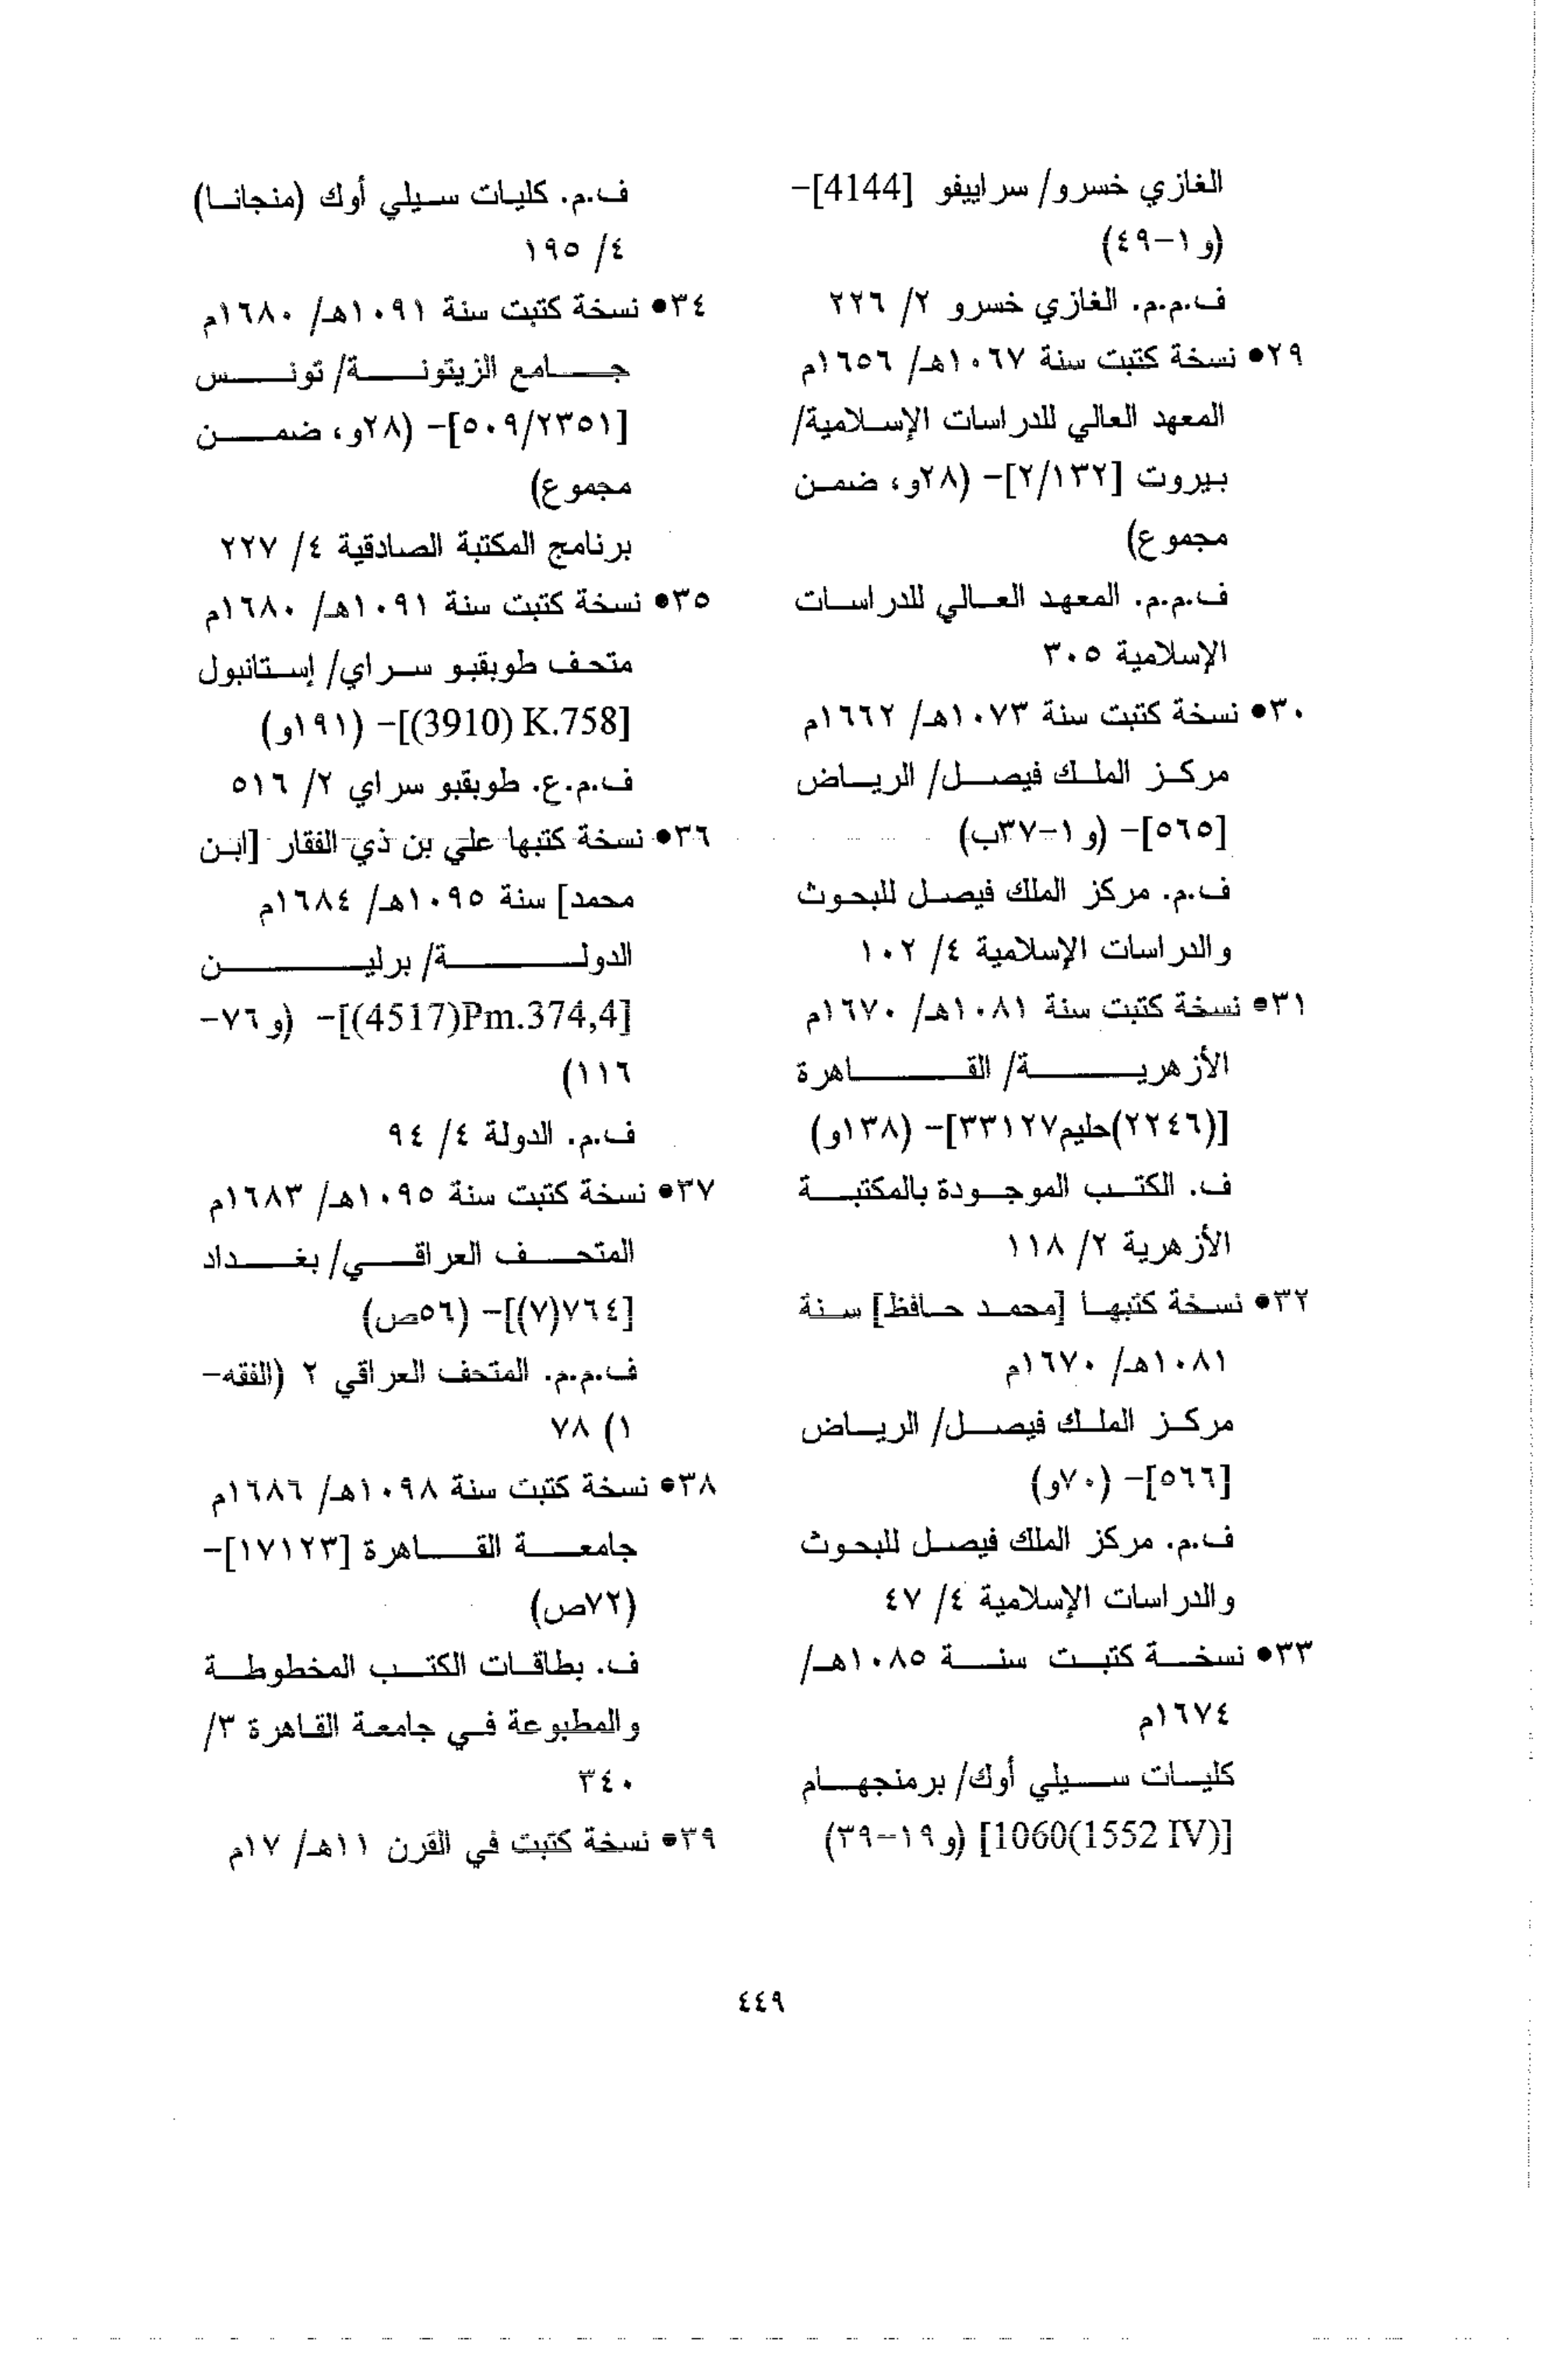 الغازي خسرو/ سراييفو [4144]-
(و١-٤٩)
ف.م.م. الغازي خسرو ٢/ ٢٢٦
٢٩● نسخة كتبت سنة ١٠٦٧هـ/ ١٦٥٦م
المعهد العالي للدراسات الإسلامية/
بيروت [٢/١٣٢]- (٢٨و، ضمن
مجموع)
ف.م.م. المعهد العالي للدراسات
الإسلامية ٣٠٥
٣٠● نسخة كتبت سنة ١٠٧٣هـ/ ١٦٦٢م
مركز الملك فيصل/ الرياض
[٥٦٥]- (و١-٣٧ب)
ف.م. مركز الملك فيصل للبحوث
والدراسات الإسلامية ٤/ ١٠٢
٣١● نسخة كتبت سنة ١٠٨١هـ/ ١٦٧٠م
الأزهرية/ القاهرة
[(٢٢٤٦)حليم٣٣١٢٧]- (١٣٨و)
ف. الكتب الموجودة بالمكتبة
الأزهرية ٢/ ١١٨
٣٢● نسخة كتبها [محمد حافظ] سنة
١٠٨١هـ/ ١٦٧٠م
مركز الملك فيصل/ الرياض
[٥٦٦]- (٧٠و)
ف.م. مركز الملك فيصل للبحوث
والدراسات الإسلامية ٤/ ٤٧
٣٣● نسخة كتبت سنة ١٠٨٥هـ/
١٦٧٤م
كليات سيلي أوك/ برمنجهام
[1060(1552 IV)] (و١٩-٣٩)
ف.م. كليات سيلي أوك (منجانا)
٤/ ١٩٥
٣٤● نسخة كتبت سنة ١٠٩١هـ/ ١٦٨٠م
جامع الزيتونة/ تونس
[٥٠٩/٢٣٥١]- (٢٨و، ضمن
مجموع)
برنامج المكتبة الصادقية ٤/ ٢٢٧
٣٥● نسخة كتبت سنة ١٠٩١هـ/ ١٦٨٠م
متحف طوبقبو سراي/ إستانبول
[K.758 (3910)]- (١٩١و)
ف.م.ع. طوبقبو سراي ٢/ ٥١٦
٣٦● نسخة كتبها علي بن ذي الفقار [ابن
محمد] سنة ١٠٩٥هـ/ ١٦٨٤م
الدولة/ برلين
[Pm.374,4(4517)]- (و٧٦-
١١٦)
ف.م. الدولة ٤/ ٩٤
٣٧● نسخة كتبت سنة ١٠٩٥هـ/ ١٦٨٣م
المتحف العراقي/ بغداد
[٧٦٤(٧)]- (٥٦ص)
ف.م.م. المتحف العراقي ٢ (الفقه-
١) ٧٨
٣٨● نسخة كتبت سنة ١٠٩٨هـ/ ١٦٨٦م
جامعة القاهرة [١٧١٢٣]-
(٧٢ص)
ف. بطاقات الكتب المخطوطة
والمطبوعة في جامعة القاهرة ٣/
٣٤٠
٣٩● نسخة كتبت في القرن ١١هـ/ ١٧م
٤٤٩